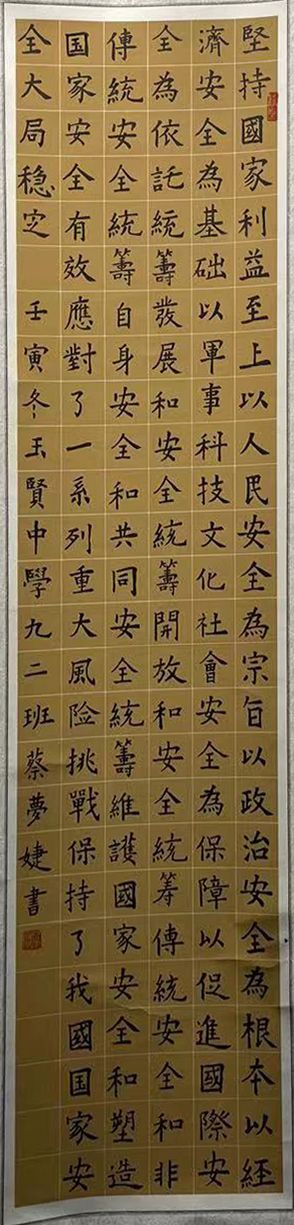 堅持國家利益至上以人民安全為宗旨以政治安全為根本以經
濟安全為基础以軍事科技文化社會安全為保障以促進國際安
全為依託統籌發展和安全統籌開放和安全統筹傳統安全和非
傳統安全統籌自身安全和共同安全統籌維護國家安全和塑造
国家安全有效應對了一系列重大風险挑戰保持了我國国家安
全大局稳定 壬寅冬玉賢中學九二班蔡夢婕書